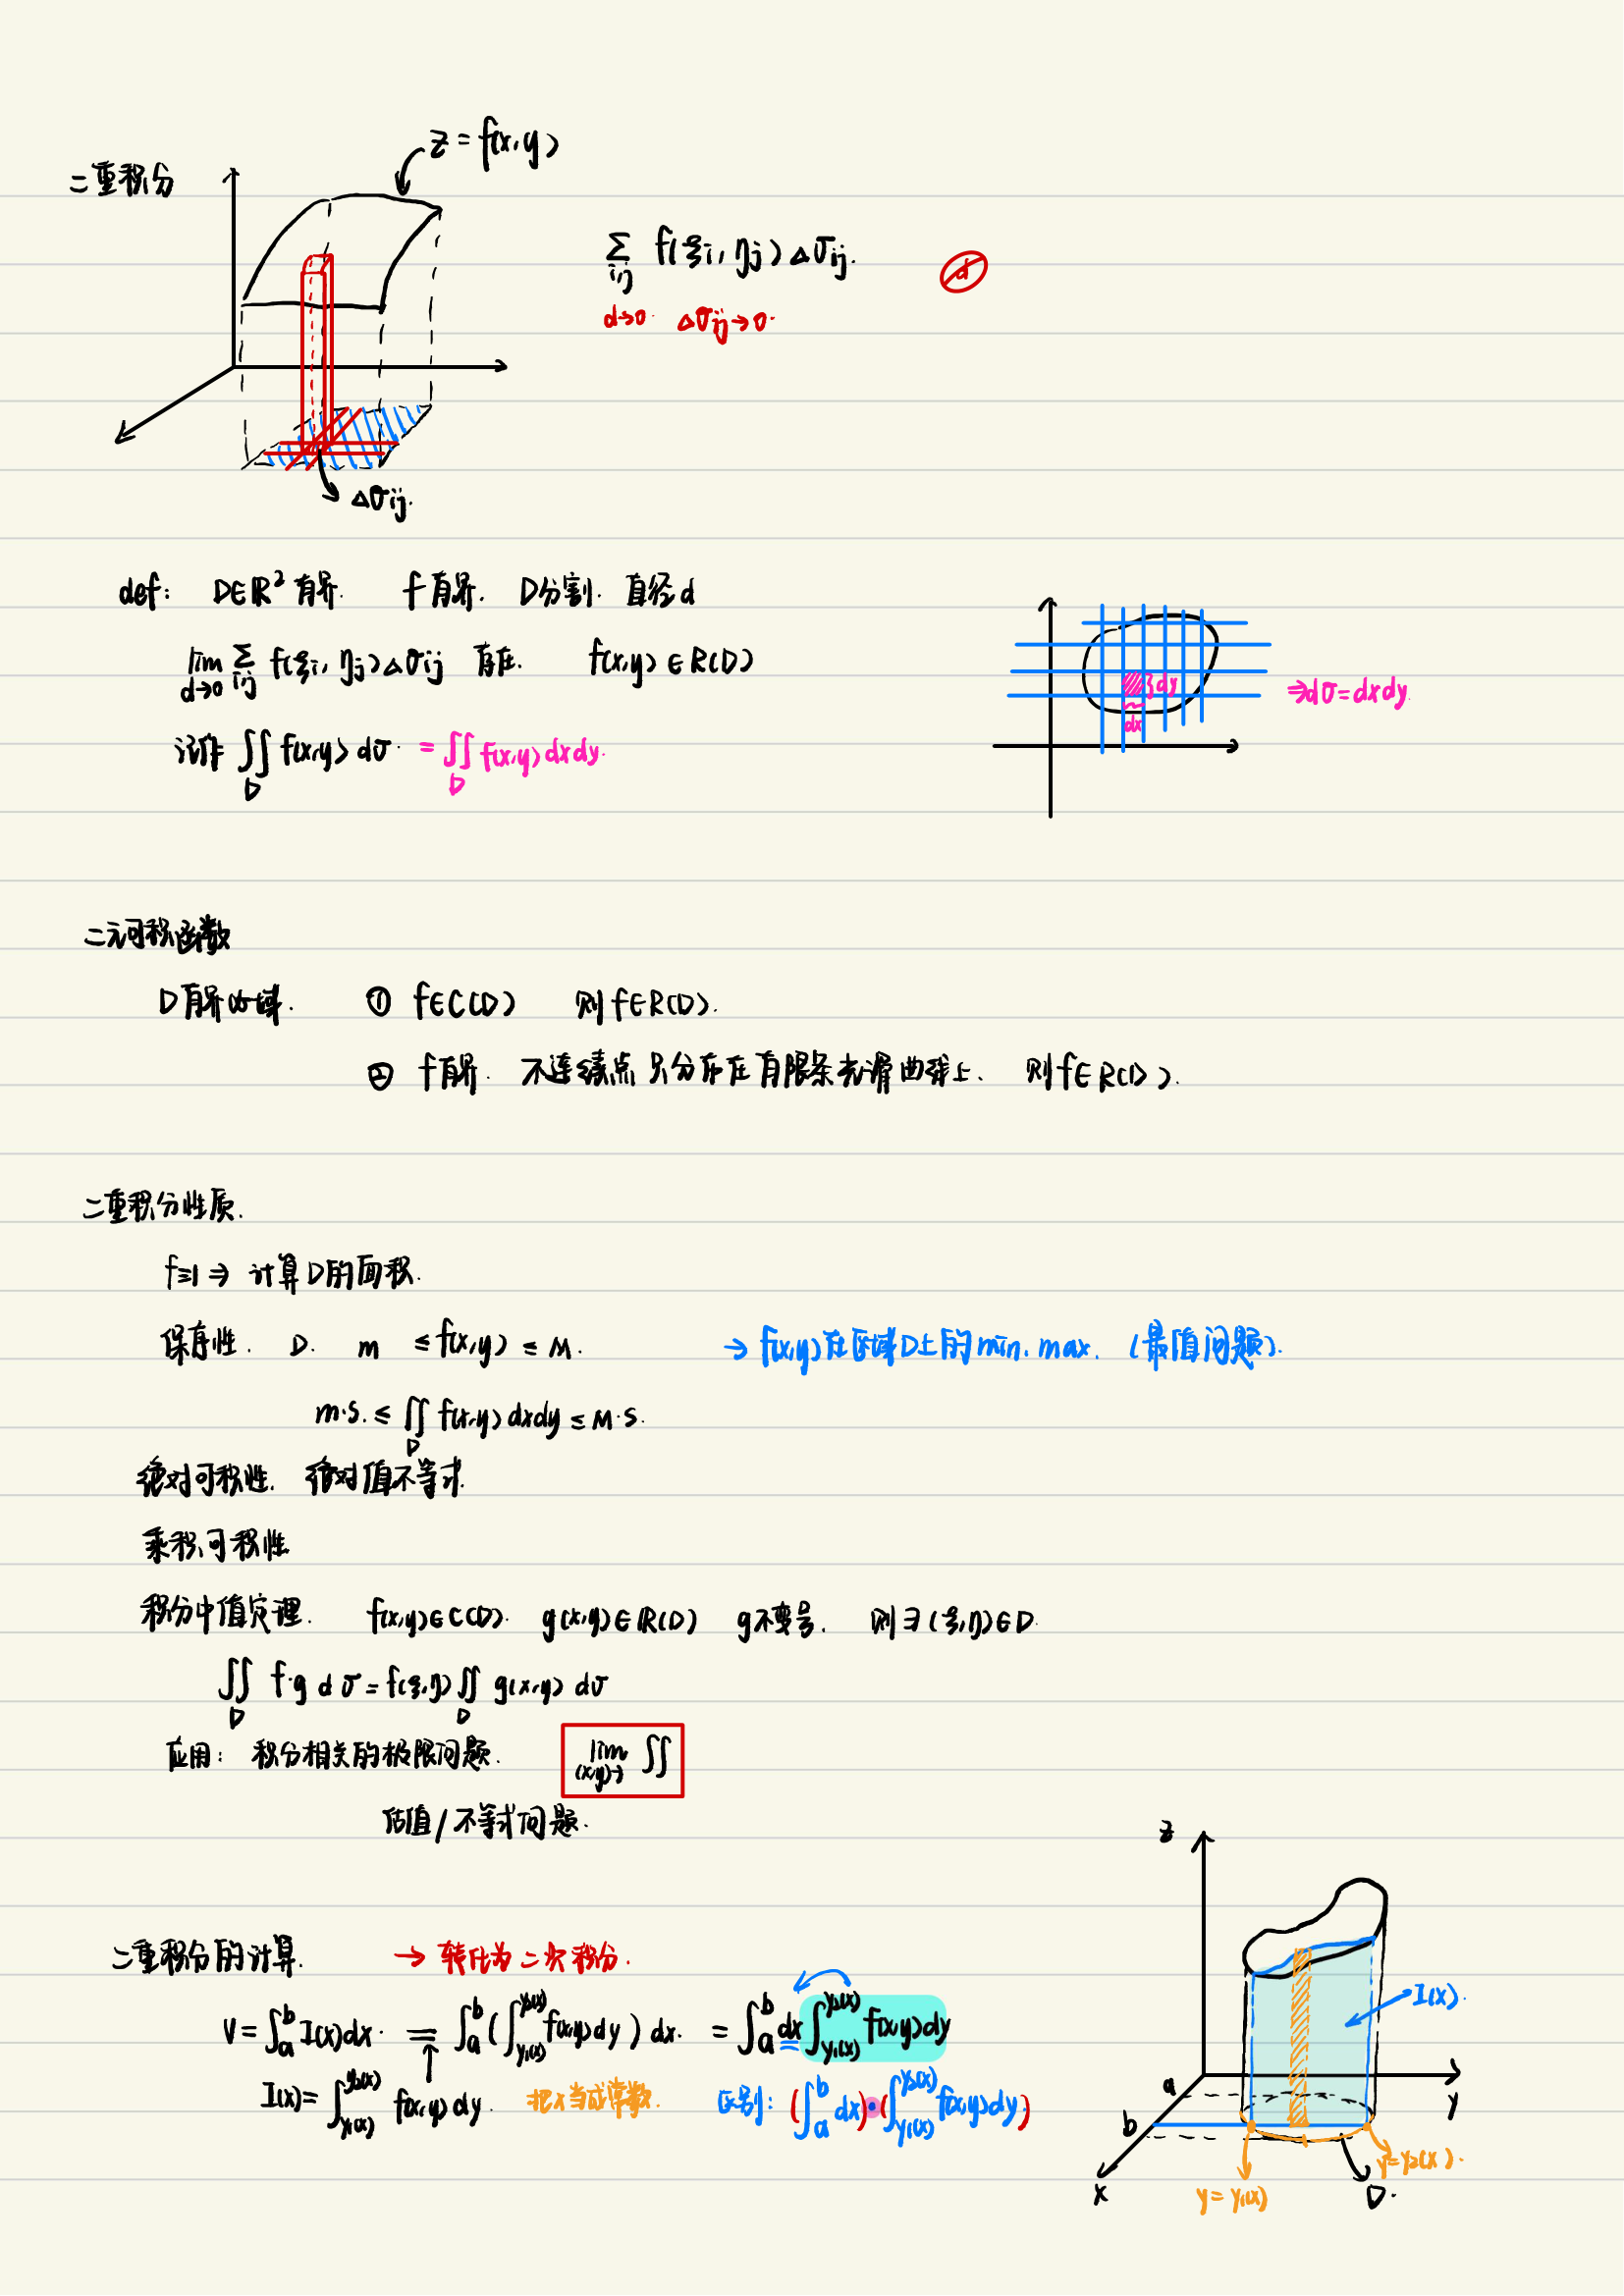 二重积分
z = f(x,y)
∑_{i,j} f(ξi, ηj) Δσij.
d
d→0. Δσij→0.
Δσij.
def: D∈ℝ² 有界. f 有界. D分割. 直径d
lim_{d→0} ∑_{i,j} f(ξi, ηj) Δσij 存在. f(x,y) ∈ R(D)
记作 ∬_D f(x,y) dσ. = ∬_D f(x,y) dxdy.
dy
dx
⇒dσ=dxdy.
二元可积函数
D 有界闭域. ① f∈C(D) 则 f∈R(D).
② f有界. 不连续点只分布在有限条光滑曲线上. 则 f∈R(D).
二重积分性质.
f≡1 ⇒ 计算D的面积.
保序性. D. m ≤ f(x,y) ≤ M. → f(x,y)在区域D上的 min. max. (最值问题).
m·S. ≤ ∬_D f(x,y) dxdy ≤ M·S.
绝对可积性. 绝对值不等式.
乘积可积性
积分中值定理. f(x,y)∈C(D). g(x,y)∈R(D) g不变号. 则∃(ξ,η)∈D.
∬_D f·g dσ = f(ξ,η) ∬_D g(x,y) dσ
应用: 积分相关的极限问题. lim_{(x,y)→} ∬
估值/不等式问题.
二重积分的计算. → 转化为二次积分.
V = ∫_a^b I(x)dx. = ∫_a^b ( ∫_{y₁(x)}^{y₂(x)} f(x,y)dy ) dx. = ∫_a^b dx ∫_{y₁(x)}^{y₂(x)} f(x,y)dy
I(x) = ∫_{y₁(x)}^{y₂(x)} f(x,y) dy. 把x当成常数. 区别: (∫_a^b dx)·(∫_{y₁(x)}^{y₂(x)} f(x,y)dy)
z
I(x).
a
y
b
y=y₂(x).
x
y=y₁(x)
D.